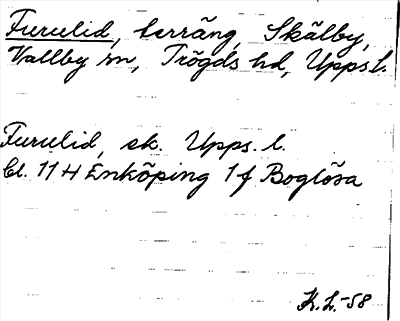 Furulid, terräng, Skälby,
Vallby sn, Trögds hd, Upps l.
Furulid, ek. Upps. l.
Bl. 11 H Enköping 1 f Boglösa
K.L.-58